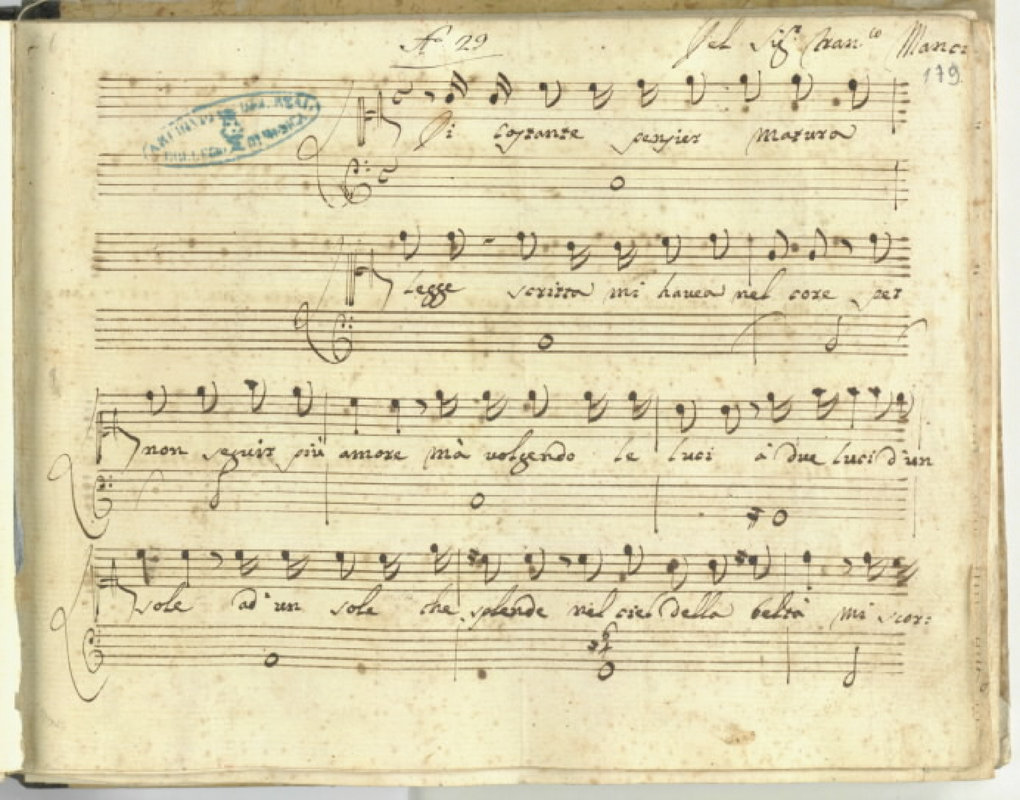 A 29
Del Sig.r Fran.co Manci
179
Di costante pensier matura
legge scritta mi havea nel core per
non seguir più amore mà volgendo le luci à due luci d'un
sole ad'un sole che splende nel ciel della beltà mi scor: